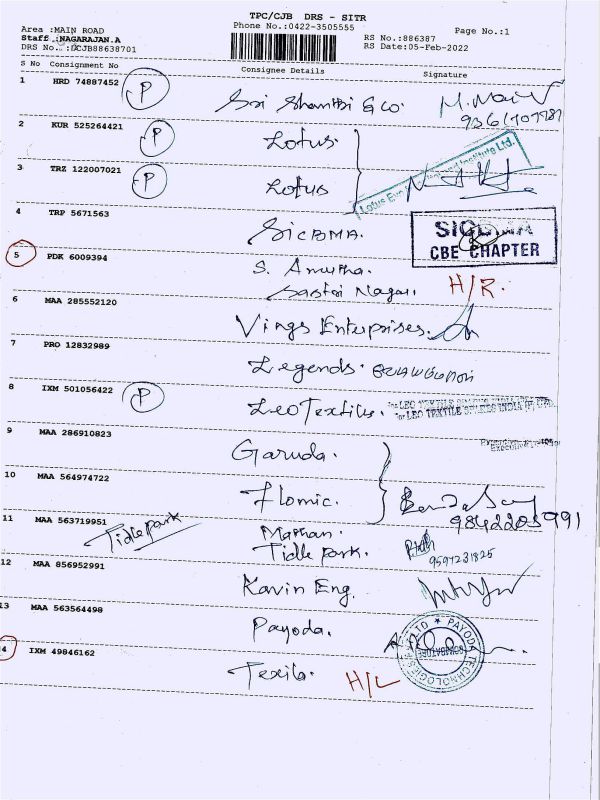 TPC/CJB DRS - SITR
Area :MAIN ROAD
Phone No.:0422-3505555
Page No.:1
Staff :NAGARAJAN.A
RS No.:886387
DRS No.. :DCJB88638701
RS Date:05-Feb-2022
S No Consignment No Consignee Details Signature
1 HRD 74887452 P Sri Shanthi & Co.
2 KUR 525264421 P Lotus
3 TRZ 122007021 P Lotus
Lotus Eye Institute Ltd.
4 TRP 5671563 SICBMA.
CBE CHAPTER
5 PDK 6009394 S. Amutha.
Sastri Nagar. H/R.
6 MAA 285552120 Vings Enterprises.
7 PRO 12832989 Legends.
8 IXM 501056422 P Leo Textiles.
For LEO TEXTILE SPARES INDIA (P) LTD.
9 MAA 286910823 Garuda.
10 MAA 564974722 Flomic.
9842205991
11 MAA 563719951 Tidle park Mathan.
Tidle park.
9597231825
12 MAA 856952991 Kavin Eng.
13 MAA 563564498 Payoda.
PAYODA TECHNOLOGIES
COIMBATORE
14 IXM 49846162 Texila. H/L